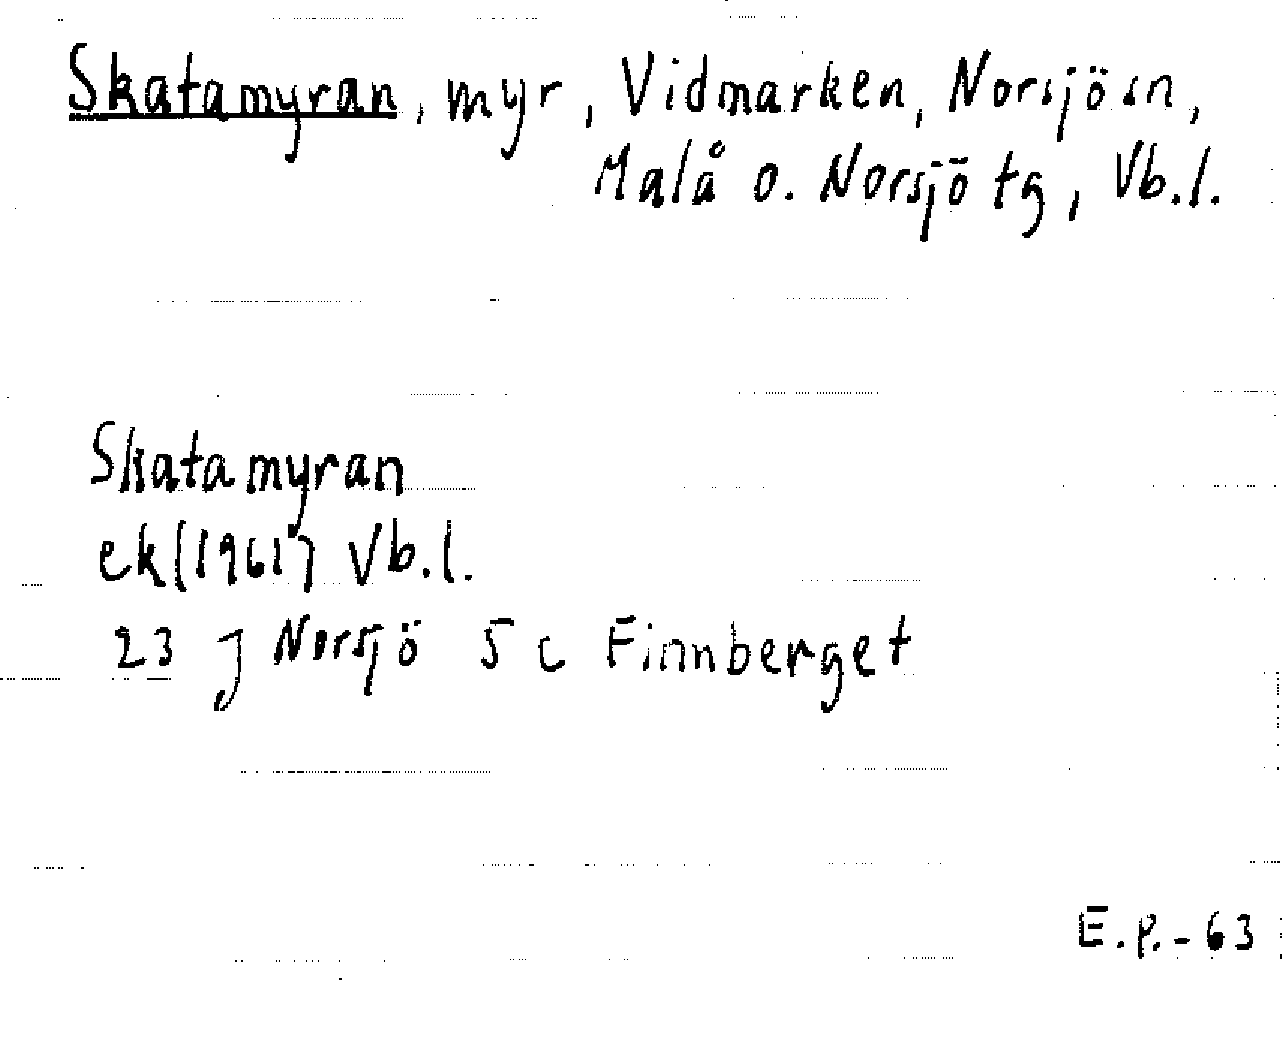 Skatamyran, myr, Vidmarken, Norsjö sn,
Malå o. Norsjö tg, Vb.l.
Skatamyran
ek (1961) Vb.l.
23 J Norsjö 5 c Finnberget
E.P.-63